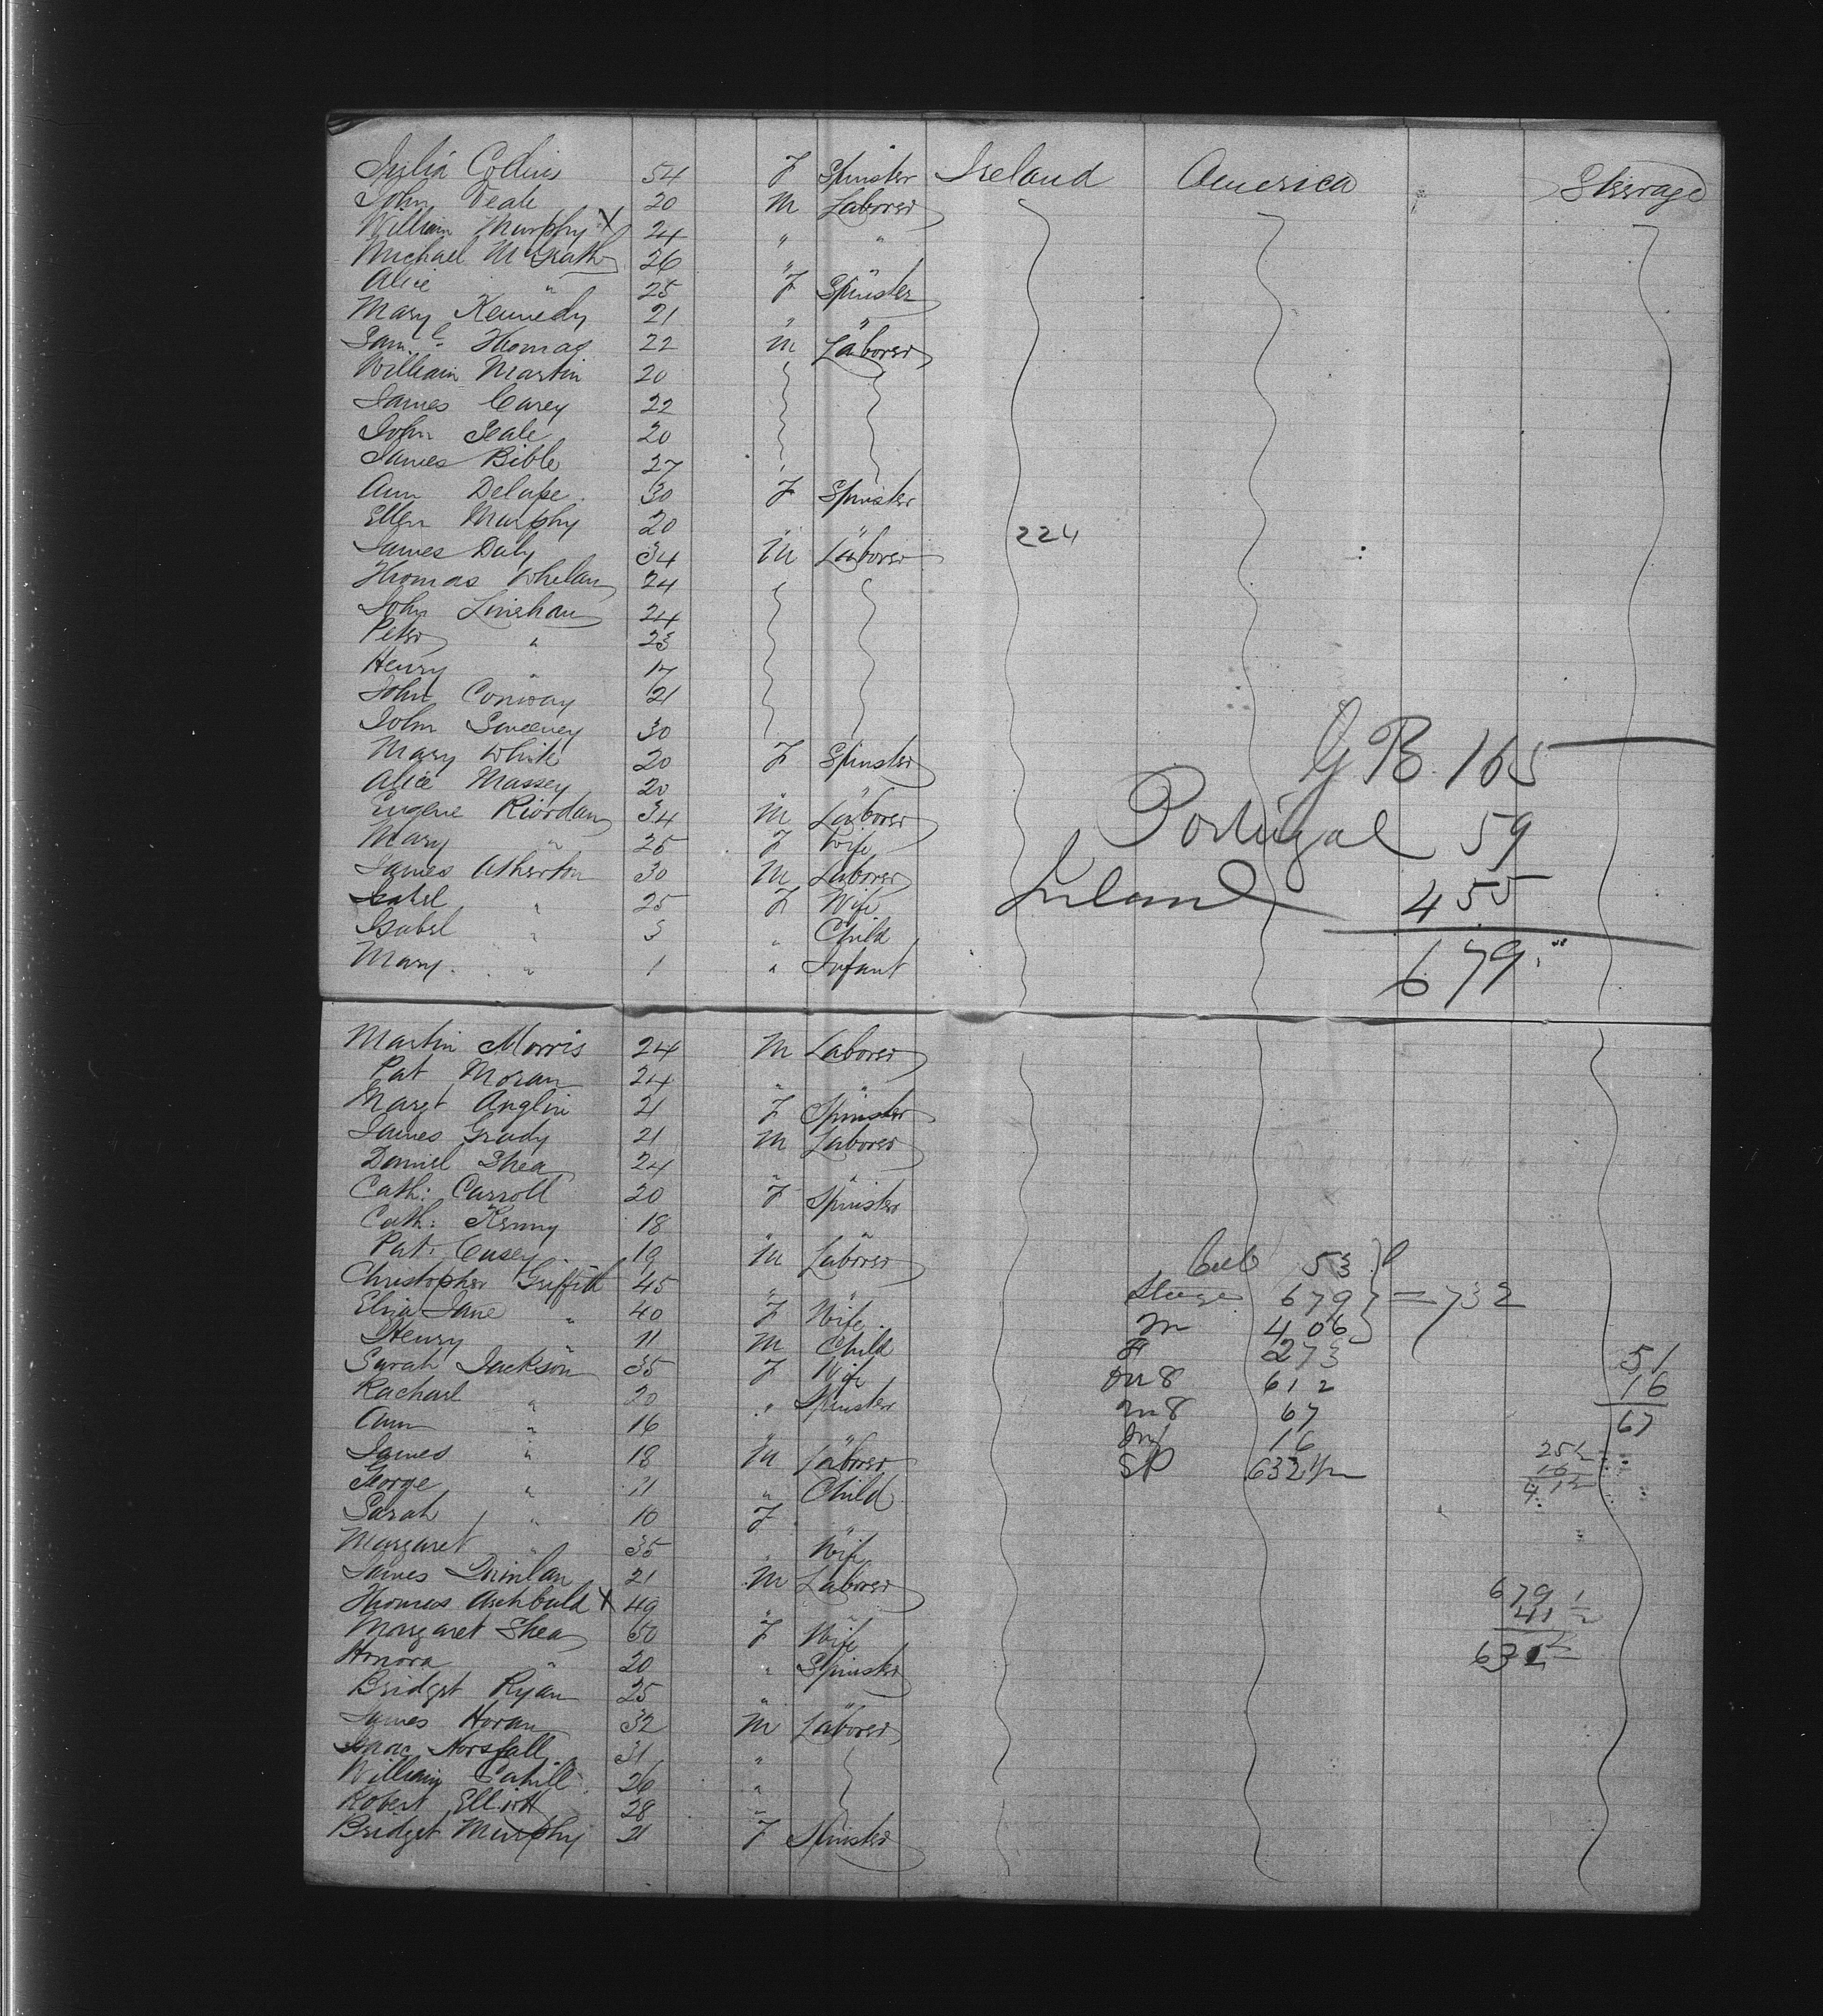 Julia Collins 54 F Spinster Ireland America Steerage
John Teale 20 M Laborer
William Murphy X 24 " "
Michael McGrath 26 " "
Alice " 25 F Spinster
Mary Kennedy 21 " "
Saml. Thomas 22 M Laborer
William Martin 20
James Carey 22
John Seale 20
James Bible 27
Ann Delape 30 F Spinster
Ellen Murphy 20 " "
224
James Daly 34 M Laborer
Thomas Whelan 24
John Linehan 24
Peter " 23
Henry " 17
John Conway 21
John Sweeney 30
Mary White 20 F Spinster
G B. 165
Alice Massey 20 " "
Eugene Riordan 34 M Laborer
Portugal 59
Mary " 25 F Wife
James Atherton 30 M Laborer
Isabel " 25 F Wife
Ireland 455
Isabel " 3 " Child
Mary " 1 " Infant
679
Martin Morris 24 M Laborer
Pat Moran 24 " "
Margt Anglin 21 F Spinster
James Grady 21 M Laborer
Daniel Shea 24 " "
Cath: Carroll 20 F Spinster
Cath: Kenny 18 " "
Pat. Casey 19 M Laborer
53
Christopher Griffith 45 " "
679 = 732
Eliza Jane " 40 F Wife
M 406
Henry " 11 M Child
F 273
51
Sarah Jackson 35 F Wife
on 8 612
16
Rachael " 20 " Spinster
un 8 67
67
Ann " 16 " "
Inf 16
James " 18 M Laborer
SP 632 1/2
25 1/2
16
41 1/2
George " 11 " Child
Sarah " 10 F "
Margaret " 35 " Wife
James Quinlan 21 M Laborer
Thomas Archbald X 49 " "
679
41 1/2
Margaret Shea 60 F Wife
Honora " 20 " Spinster
Bridget Ryan 25 " "
James Horan 32 M Laborer
Isaac Horsfall 31 "
William Cahill 26 "
Robert Elliott 28 "
Bridget Murphy 21 F Spinster